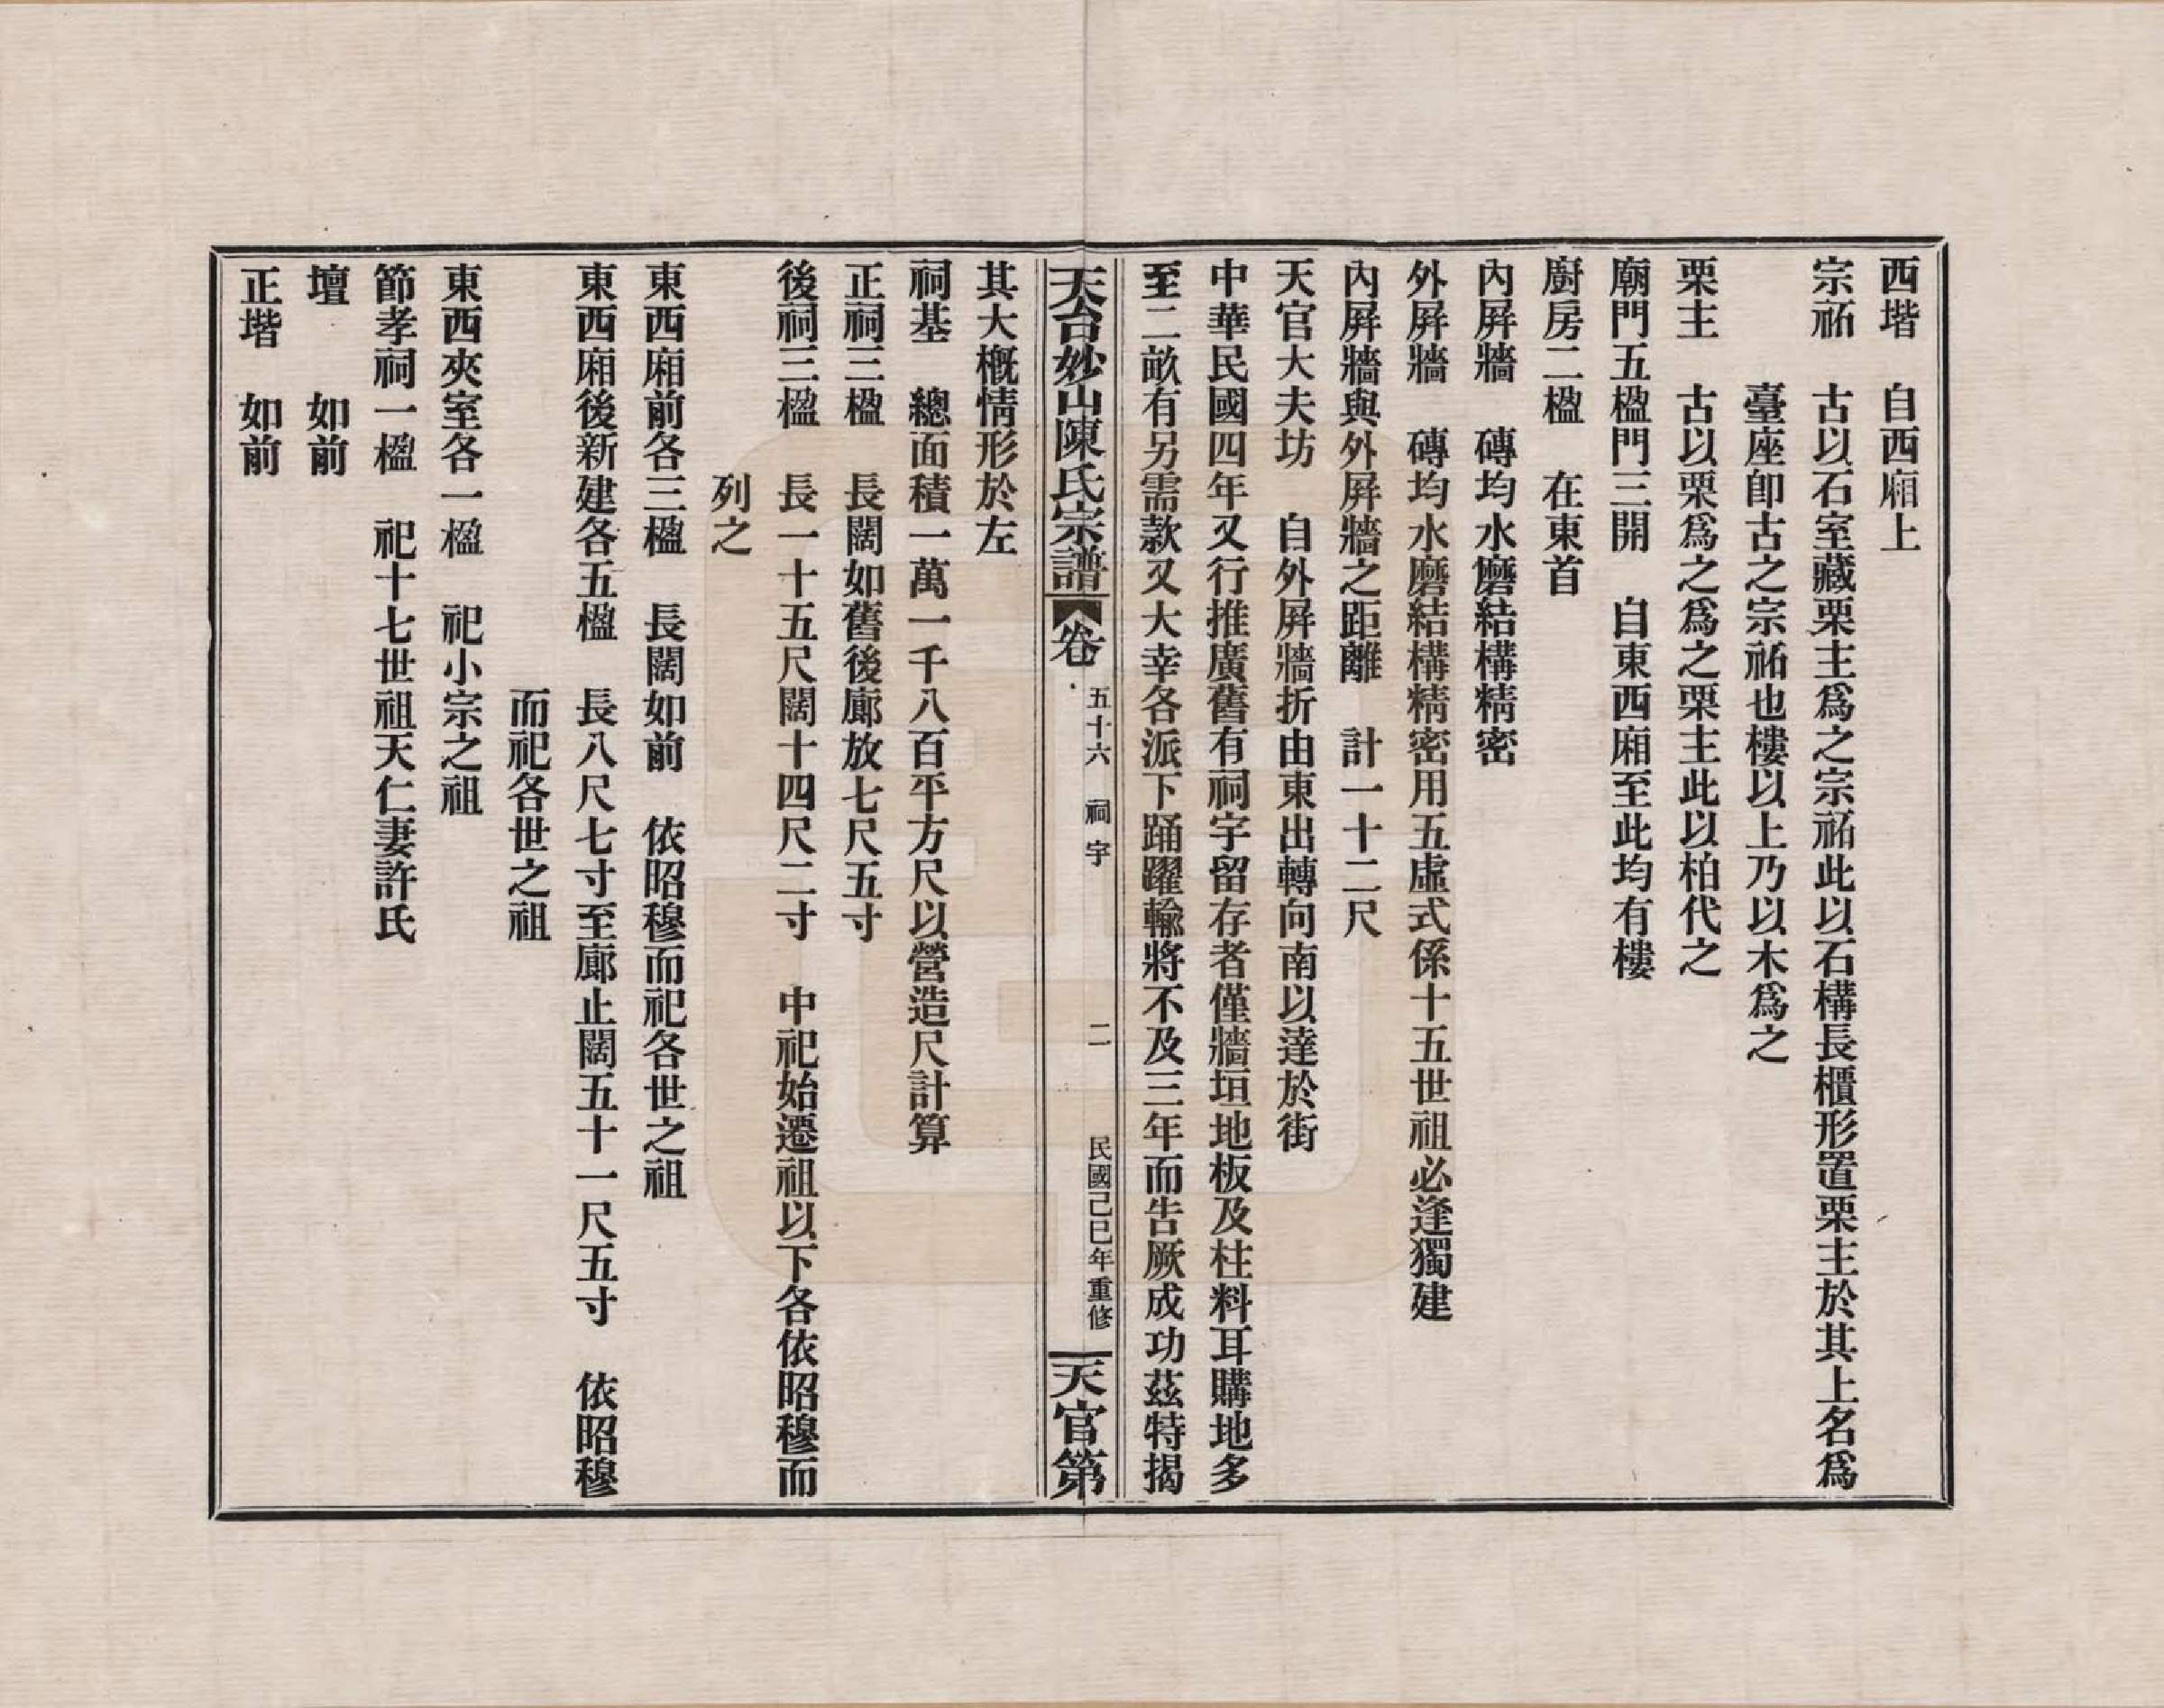 西堦　自西廂上
宗祏　古以石室藏栗主爲之宗祏此以石構長櫃形置栗主於其上名爲
臺座卽古之宗祏也樓以上乃以木爲之
栗主　古以栗爲之爲之栗主此以柏代之
廟門五楹門三開　自東西廂至此均有樓
廚房二楹　在東首
內屛牆　磚均水磨結構精密
外屛牆　磚均水磨結構精密用五虛式係十五世祖必逢獨建
內屛牆與外屛牆之距離　計一十二尺
天官大夫坊　自外屛牆折由東出轉向南以達於街
中華民國四年又行推廣舊有祠宇留存者僅牆垣地板及柱料耳購地多
至二畝有另需款又大幸各派下踊躍輸將不及三年而告厥成功茲特揭
天台妙山陳氏宗譜　卷　五十六　祠宇　二　民國己巳年重修　天官第
其大槪情形於左
祠基　總面積一萬一千八百平方尺以營造尺計算
正祠三楹　長闊如舊後廊放七尺五寸
後祠三楹　長一十五尺闊十四尺二寸　中祀始遷祖以下各依昭穆而
列之
東西廂前各三楹　長闊如前　依昭穆而祀各世之祖
東西廂後新建各五楹　長八尺七寸至廊止闊五十一尺五寸　依昭穆
而祀各世之祖
東西夾室各一楹　祀小宗之祖
節孝祠一楹　祀十七世祖天仁妻許氏
壇　如前
正堦　如前